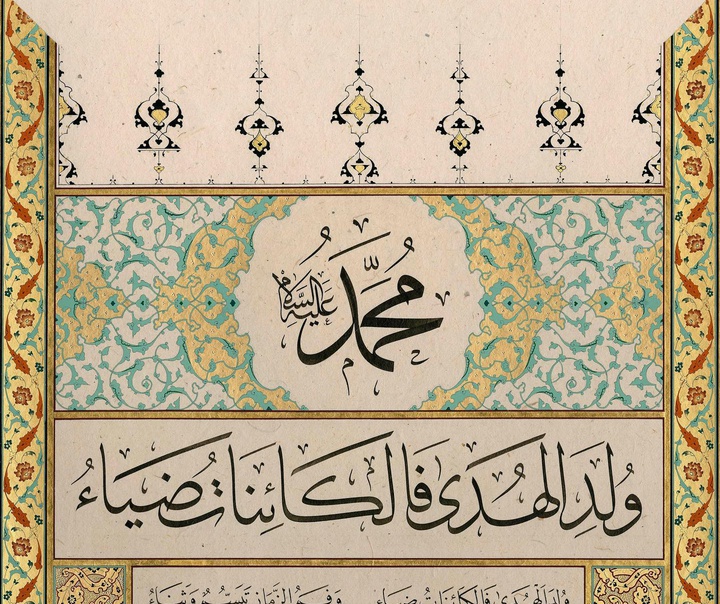 مُحَمَّد عَلَيْهِ السَّلَام
وُلِدَ الهُدَى فَالكَائِنَاتُ ضِيَاءُ
وُلِدَ الهُدَى فَالكَائِنَاتُ ضِيَاءُ وَفَمُ الزَّمَانِ تَبَسُّمٌ وَثَنَاءُ